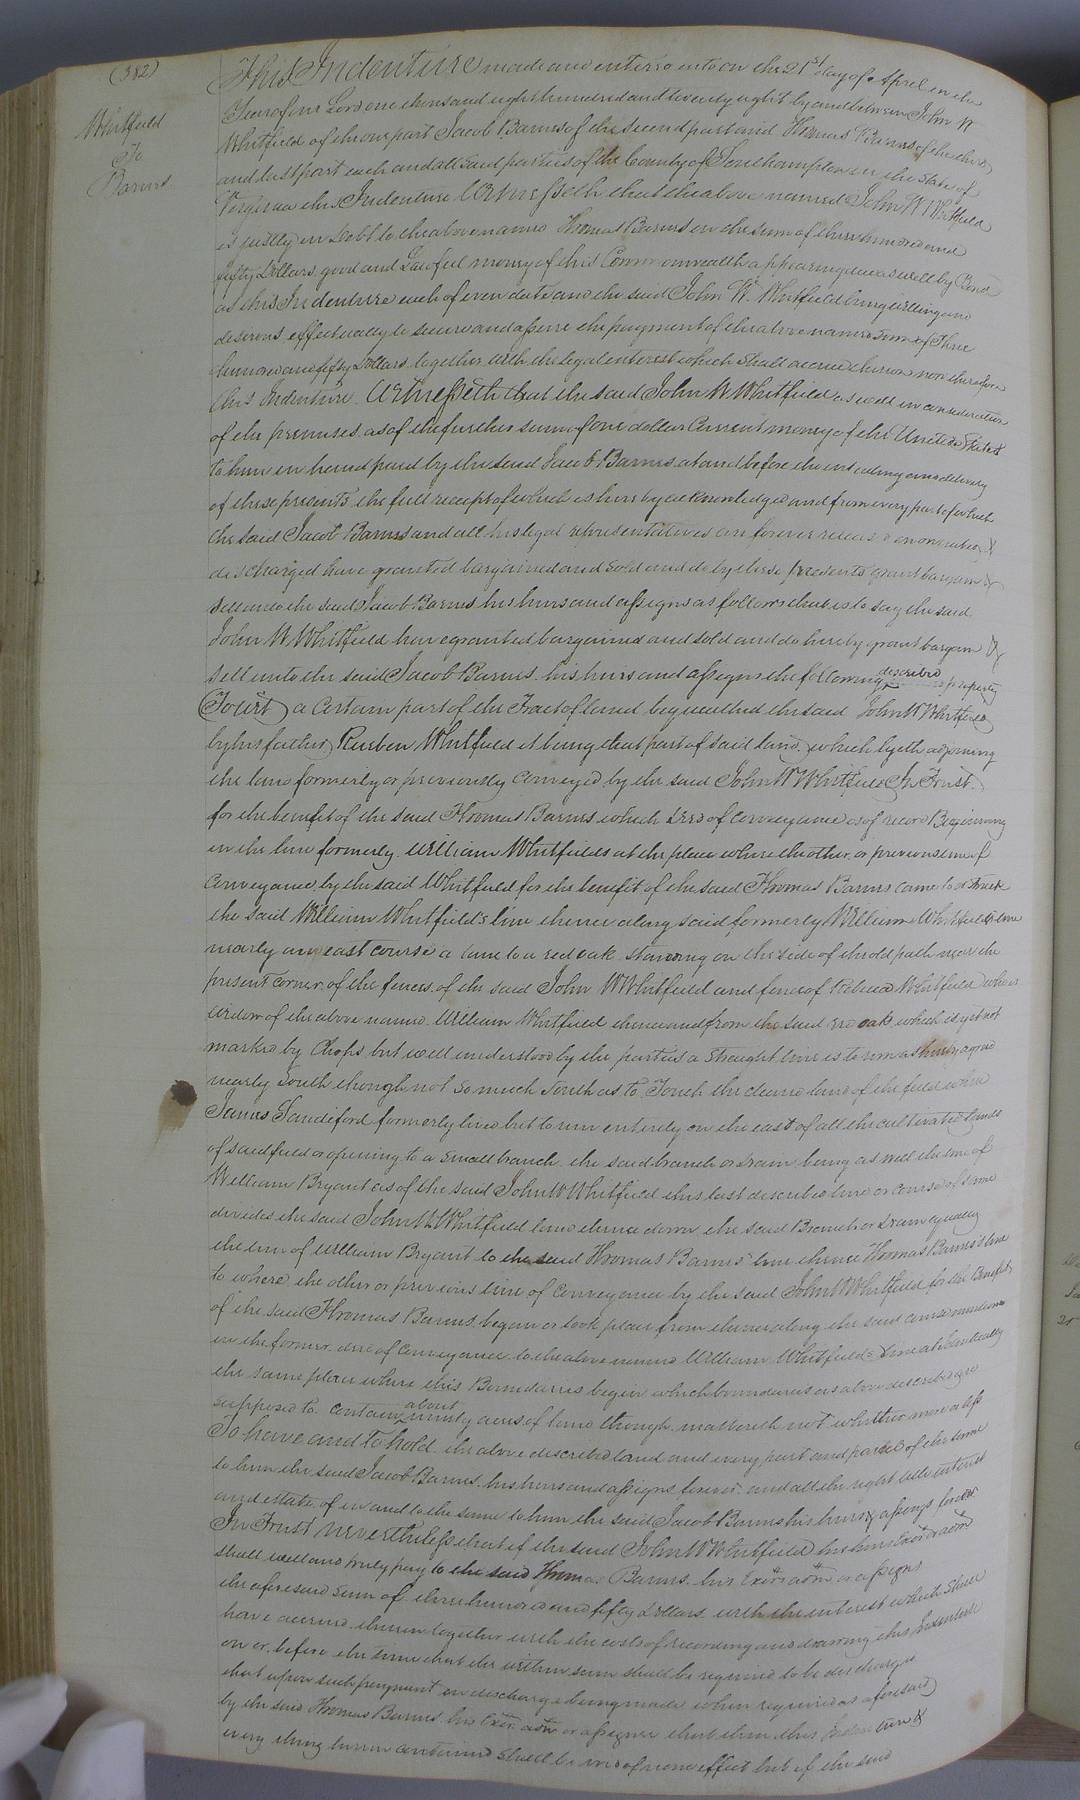 (382)
Whitfield
To
Barnes
This Indenture made and entered into on the 21st day of April in the
Year of our Lord one thousand eight hundred and twenty eight by and between John W
Whitfield of the one part Jacob Barnes of the second part and Thomas Barnes of the third
and last part each and all said parties of the County of Southampton in the State of
Virginia this Indenture Witnesseth that the above named John W Whitfield
is justly in Debt to the above named Thomas Barnes in the sum of three hundred and
fifty Dollars good and Lawful money of this Commonwealth appearing due as well by Bond
as this Indenture each of even date and the said John W. Whitfield being willing and
desirous effectually to secure and assure the payment of the above named sum of Three
hundred and fifty Dollars together with the legal interest which shall accrue thereon now therefore
this Indenture Witnesseth that the said John W Whitfield as well in consideration
of the premises as of the further sum of one dollar Current money of the United States
to him in hand paid by the said Jacob Barnes at and before the ensealing and delivery
of these presents the full receipt of which is hereby acknowledged and from every part of which
the said Jacob Barnes and all his legal representatives are forever released exonerated &
discharged have granted bargained and sold and do by these presents grant bargain &
sell unto the said Jacob Barnes his heirs and assigns as follows that is to say the said
John W Whitfield have granted bargained and sold and do hereby grant bargain &
sell unto the said Jacob Barnes his heirs and assigns the following described property
(To wit) a Certain part of the Tract of land bequeathed the said John W Whitfield
by his father Reuben Whitfield it being that part of said land which lyeth adjoining
the land formerly or previously Conveyed by the said John W Whitfield In Trust
for the benefit of the said Thomas Barnes which deed of Conveyance is of record Beginning
in the line formerly William Whitfields at the place where the other or previous line of
Conveyance by the said Whitfield for the benefit of the said Thomas Barnes came to or struck
the said William Whitfield's line thence along said formerly William Whitfields line
nearly an east course a line to a red oak standing on the side of the old path near the
present corner of the fences of the said John W Whitfield and fence of Rebecca Whitfield who is
widow of the above named William Whitfield thence and from the said red oak which is yet not
marked by Chops but well understood by the parties a straight line is to run as hereby agreed
nearly South though not so much South as to Touch the cleared land of the field where
James Sandiford formerly lived but to run entirely on the east of all the cultivated lands
of said field or opening to a small branch the said branch or drain being as well the line of
William Bryant as of the said John W Whitfield this last described line or course of same
divides the said John W Whitfield land thence down the said Branch or drain equally
the line of William Bryant to the said Thomas Barnes' line thence Thomas Barnes's line
to where the other or previous line of Conveyance by the said John W Whitfield for the Benefit
of the said Thomas Barnes began or took place from thence along the said course mentioned
in the former deed of Conveyance to the above named William Whitfield's line at identically
the same place where this Boundaries begin which boundaries as above described are
supposed to contain about ninety acres of land though mattereth not whether more or less
To have and to hold the above described land and every part and parcel of the same
to him the said Jacob Barnes his heirs and assigns forever and all the right title interest
and estate of in and to the same to him the said Jacob Barnes his heirs & assigns forever
In Trust nevertheless that if the said John W Whitfield his heirs Exors or adm
shall well and truly pay to the said Thomas Barnes his Exors adm or assigns
the aforesaid sum of three hundred and fifty Dollars with the interest which shall
have accrued thereon together with the costs of recording and drawing this Indenture
on or before the time that the within sum shall be required to be discharged
that upon such payment or discharge being made when required as aforesaid
by the said Thomas Barnes his Exor adm or assigns that then this Indenture &
every thing herein contained shall be void of none effect but if the said